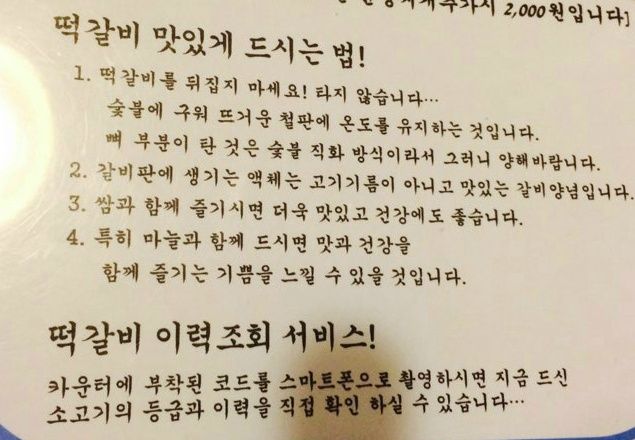 추가시 2,000원입니다]
떡갈비 맛있게 드시는 법!
1. 떡갈비를 뒤집지 마세요! 타지 않습니다…
숯불에 구워 뜨거운 철판에 온도를 유지하는 것입니다.
뼈 부분이 탄 것은 숯불 직화 방식이라서 그러니 양해바랍니다.
2. 갈비판에 생기는 액체는 고기기름이 아니고 맛있는 갈비양념입니다.
3. 쌈과 함께 즐기시면 더욱 맛있고 건강에도 좋습니다.
4. 특히 마늘과 함께 드시면 맛과 건강을
함께 즐기는 기쁨을 느낄 수 있을 것입니다.
떡갈비 이력조회 서비스!
카운터에 부착된 코드를 스마트폰으로 촬영하시면 지금 드신
소고기의 등급과 이력을 직접 확인 하실 수 있습니다…